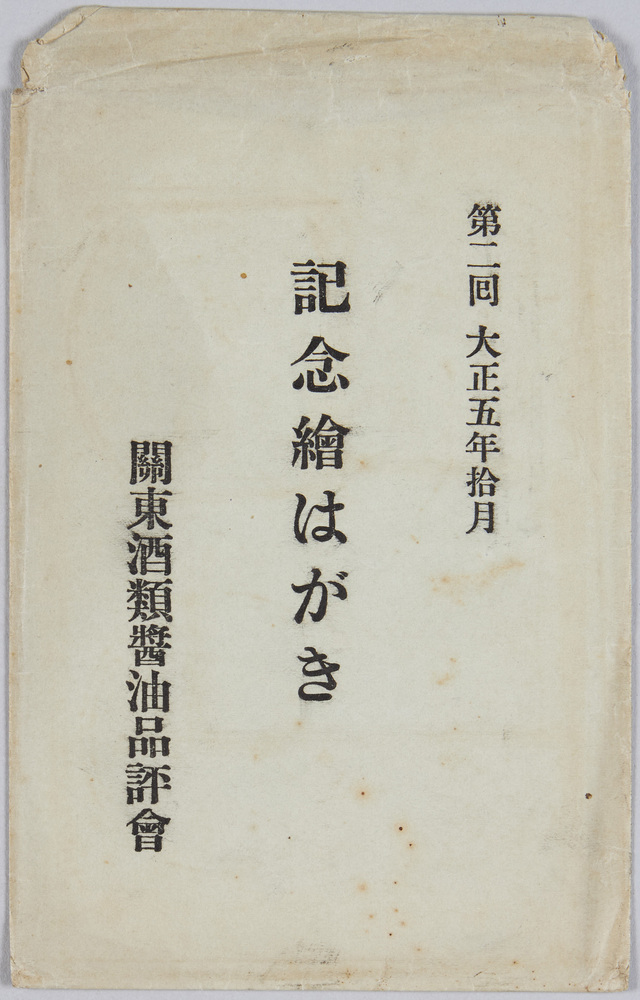 第二回 大正五年拾月
記念繪はがき
關東酒類醬油品評會